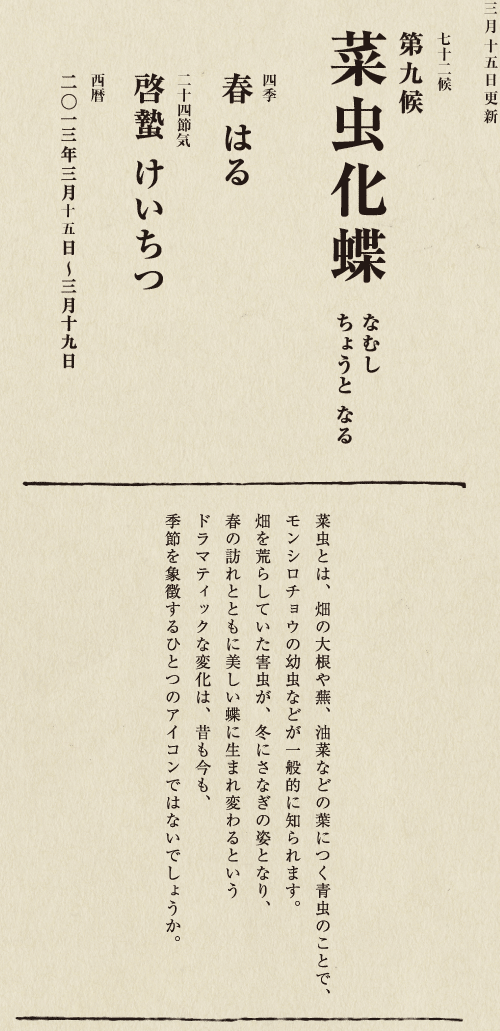 三月十五日更新
七十二候
第九候
菜虫化蝶
なむし
ちょうと なる
四季
春 はる
二十四節気
啓蟄 けいちつ
西暦
二〇一三年三月十五日〜三月十九日
菜虫とは、畑の大根や蕪、油菜などの葉につく青虫のことで、
モンシロチョウの幼虫などが一般的に知られます。
畑を荒らしていた害虫が、冬にさなぎの姿となり、
春の訪れとともに美しい蝶に生まれ変わるという
ドラマティックな変化は、昔も今も、
季節を象徴するひとつのアイコンではないでしょうか。